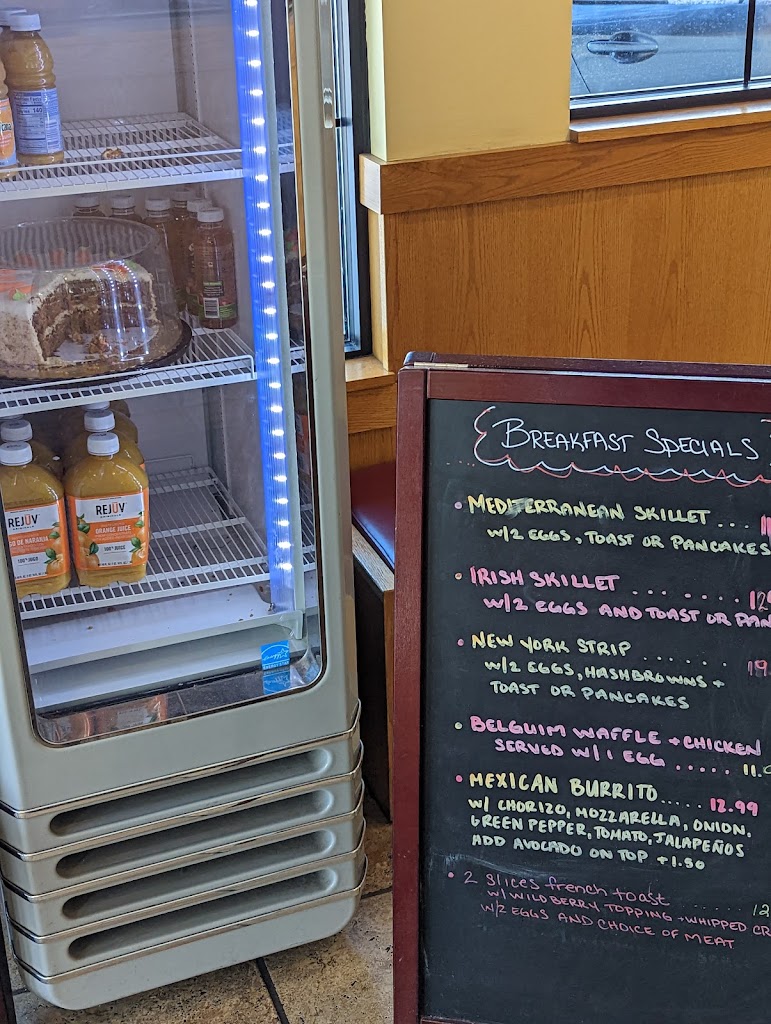 BREAKFAST SPECIALS
• MEDITERRANEAN SKILLET ...
W/2 EGGS, TOAST OR PANCAKES
• IRISH SKILLET ......
W/2 EGGS AND TOAST OR
• NEW YORK STRIP ....... 19.
W/2 EGGS, HASHBROWNS +
TOAST OR PANCAKES
• BELGUIM WAFFLE + CHICKEN
SERVED W/1 EGG ..... 11.
• MEXICAN BURRITO..... 12.99
W/ CHORIZO, MOZZARELLA, ONION,
GREEN PEPPER, TOMATO, JALAPEÑOS
ADD AVOCADO ON TOP +1.50
• 2 slices french toast ....... 12
W/ WILDBERRY TOPPING + WHIPPED
W/2 EGGS AND CHOICE OF MEAT
REJŪV
DE NARANJA
100% JUICE
REJŪV
ORANGE JUICE
100% JUICE
140
ENERGY STAR